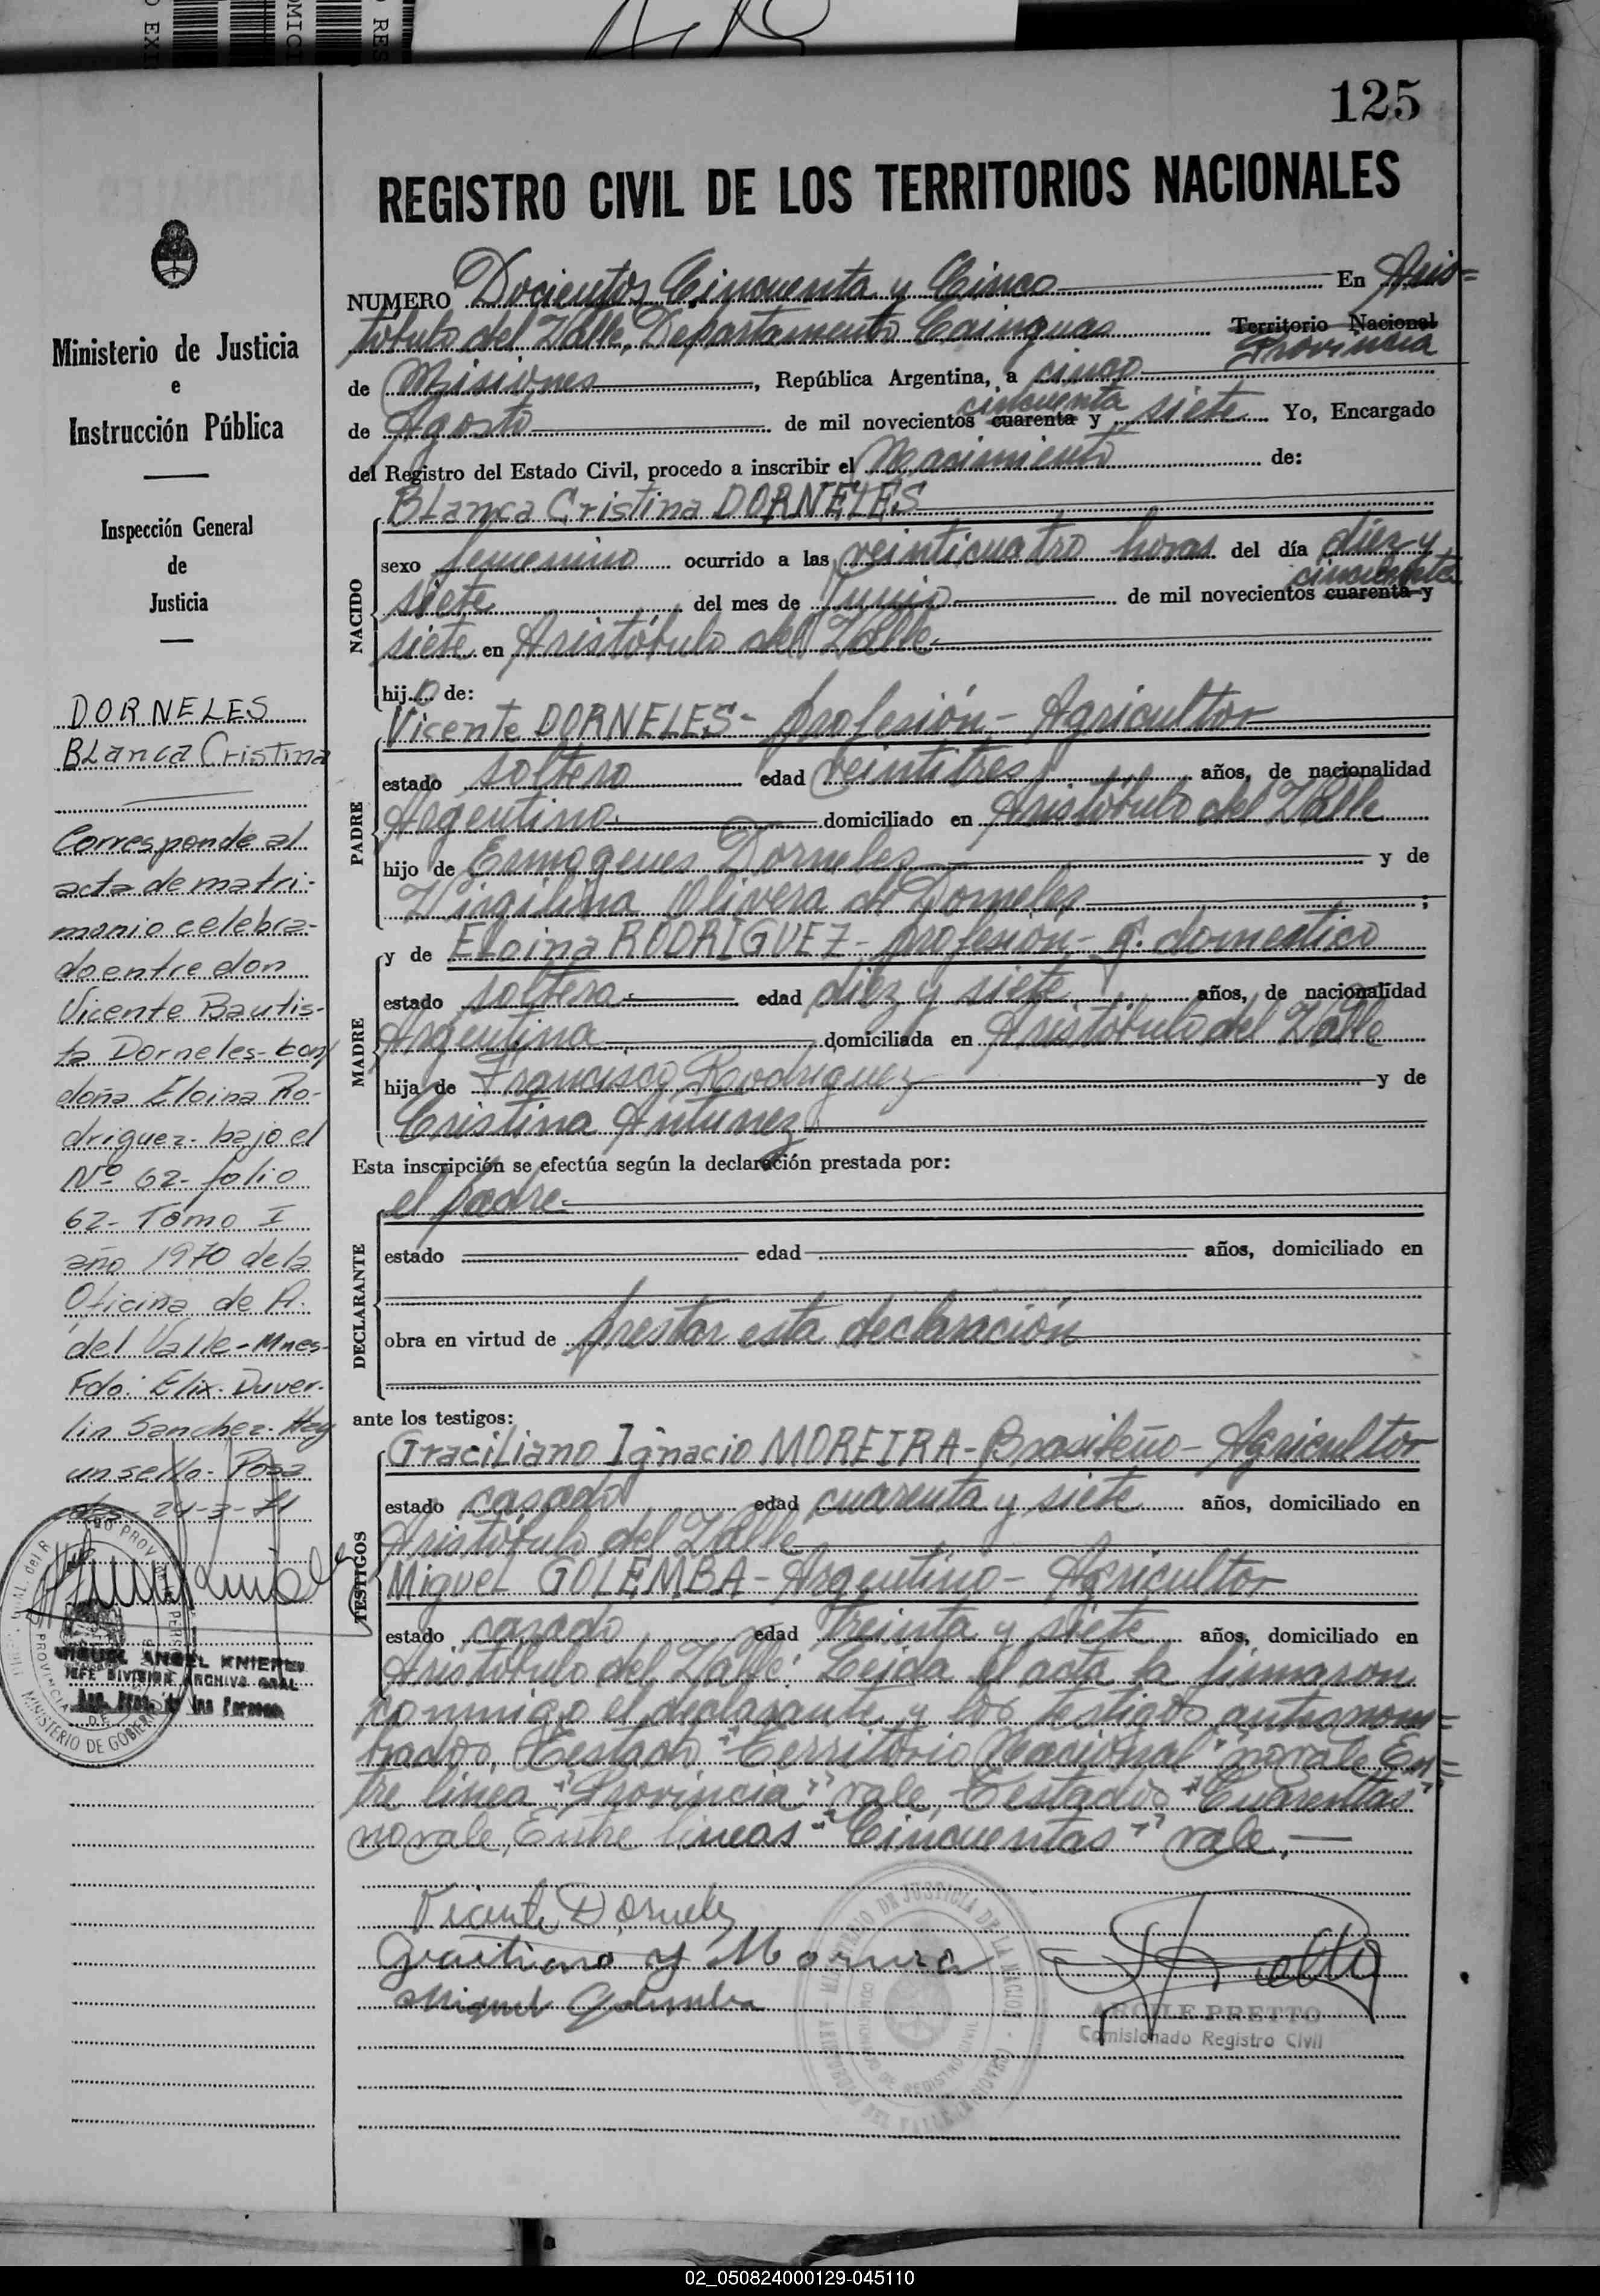 125
REGISTRO CIVIL DE LOS TERRITORIOS NACIONALES
NUMERO Docientos Cincuenta y Cinco En Aris=
tóbulo del Valle, Departamento Cainguas Territorio Nacional
Provincia
de Misiones, República Argentina, a cinco
cincuenta
de Agosto de mil novecientos cuarenta y siete Yo, Encargado
del Registro del Estado Civil, procedo a inscribir el Nacimiento de:
NACIDO
Blanca Cristina DORNELES
sexo femenino ocurrido a las veinticuatro horas del día diez y
cincuenta
siete del mes de Junio de mil novecientos cuarenta y
siete en Aristóbulo del Valle
hija de:
PADRE
Vicente DORNELES- profesión- Agricultor
estado soltero edad veintitres años, de nacionalidad
Argentino domiciliado en Aristóbulo del Valle
hijo de Ermogenes Dorneles y de
Virgilina Olivera de Dorneles ;
MADRE
y de Eloina RODRIGUEZ- profesión- q. domestico
estado soltera edad diez y siete años, de nacionalidad
Argentina domiciliada en Aristóbulo del Valle
hija de Francisco Rodriguez y de
Cristina Antunez
Esta inscripción se efectúa según la declaración prestada por:
DECLARANTE
el padre
estado edad años, domiciliado en
obra en virtud de prestar esta declaración
ante los testigos:
TESTIGOS
Graciliano Ignacio MOREIRA- Brasileño- Agricultor
estado casado edad cuarenta y siete años, domiciliado en
Aristóbulo del Valle
Miguel GOLEMBA- Argentino- Agricultor
estado casado edad treinta y siete años, domiciliado en
Aristóbulo del Valle: Leida el acta la firmaron
conmigo el declarante y los testigos antesnom=
brados, Testado "Territorio Nacional" novale, En=
tre linea "Provincia" vale, Testados "Cuarentas"
novale, Entre lineas "Cincuentas" vale,
Vicente Dorneles
Miguel Golemba
ARCILE PRETTO
Comisionado Registro Civil
Ministerio de Justicia
e
Instrucción Pública
Inspección General
de
Justicia
DORNELES
Blanca Cristina
Corresponde al
acta de matri-
monio celebra-
do entre don
Vicente Bautis-
ta Dorneles- con
doña Eloina Ro-
driguez- bajo el
Nº 62- folio
62- Tomo I
año 1970 de la
Oficina de A.
del Valle- Mnes-
Fdo: Elix- Duver-
lin Sanchez- Hay
un sello- Posa
das- 24-3-71
MIGUEL ANGEL KNIEPER
JEFE DIVISION ARCHIVO GRAL
MINISTERIO DE GOBIERNO
02_050824000129-045110